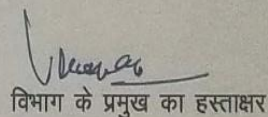 विभाग के प्रमुख का हस्ताक्षर